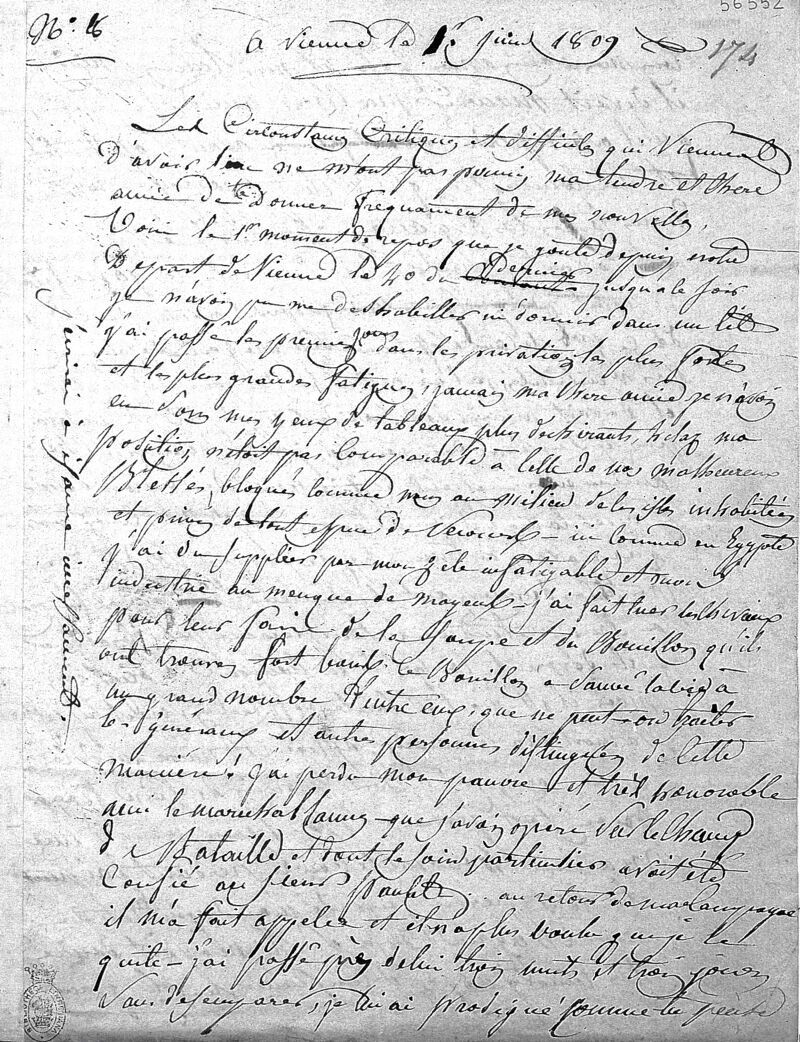 56552
N.º 8
a Vienne le 1.r juin 1809
174
Les Circonstances Critiques et difficiles qui Viennent
d'avoir lieu ne m'ont pas permis ma tendre et chere
amie de te donner frequament de mes nouvelles,
Voici le 1.er moment de repos que je goute depuis notre
Depart de Vienne le 20 du dernier jusqu'a le soir
je n'avois pu me deshabiller ni dormir dans un lit
j'ai passé les premiers jours dans les privations les plus fortes
et les plus grandes fatigues, jamais ma chere amie je n'avois
eu sous mes yeux de tableaux plus dechirants, helas ma
position n'étoit pas Comparable à Celle de nos malheureux
Blessés, bloqués Comme nous au milieu de les isles inhabitées
et privés de tout espece de Secours - ici Comme en Egypte
j'ai du suppléer par mon zèle infatigable et mon
industrie au menque de moyens - j'ai fait tuer les chevaux
pour leur faire de la Soupe et du Bouillon qu'ils
ont trouvés fort bons. le Bouillon a sauvé la vie à
un grand nombre d'entre eux, que ne peut-on traiter
les généraux et autres personnes distinguées de Cette
maniére! j'ai perdu mon pauvre et très honorable
ami le marechal lannes - que j'avois opéré sur le Champ
d Bataille et dont le soin particulier avoit été
Confié au sieur Paulet . . au retour de ma Campagne
il m'a fait appeler et il n'a plus voulu que je le
quite - j'ai passé près de lui trois nuits et trois jours
Sans desemparer, je lui ai prodigué comme tu penses
j'ecrirai à isaure incessament.